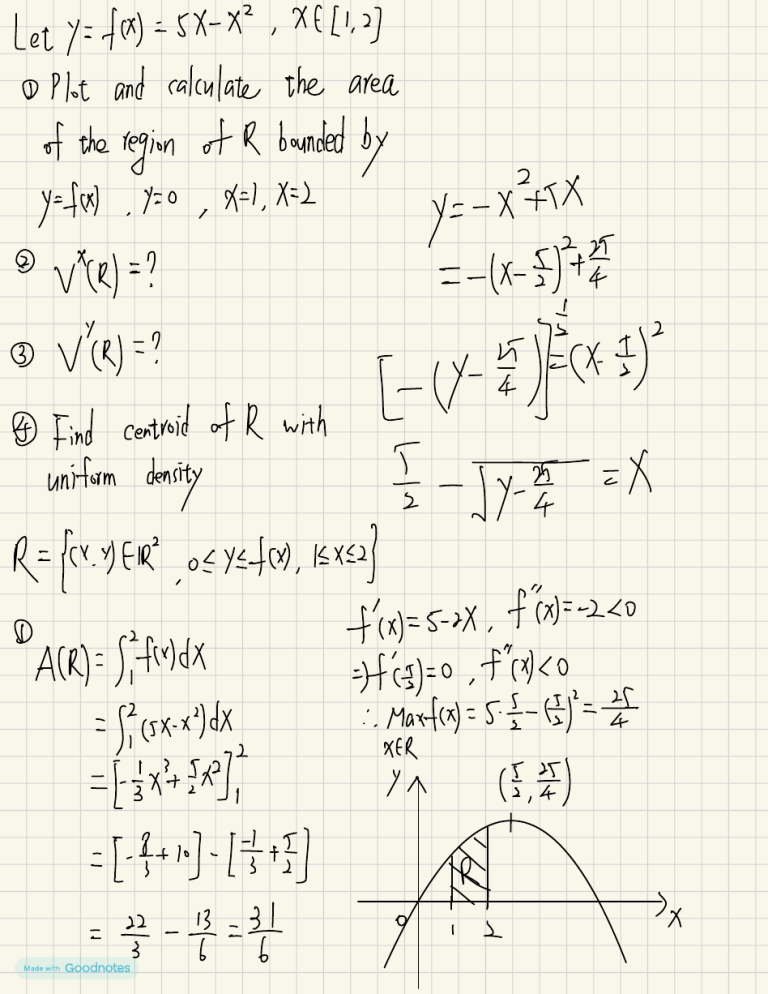 Let y = f(x) = 5x - x², x ∈ [1,2]
① Plot and calculate the area
of the region of R bounded by
y=f(x), y=0, x=1, x=2
② Vˣ(R) = ?
③ Vʸ(R) = ?
④ Find centroid of R with
uniform density
y = -x² + 5x
= -(x - 5/2)² + 25/4
[-(y - 25/4)]^(1/2) = (x - 5/2)²
5/2 - √(y - 25/4) = x
R = {(x, y) ∈ ℝ², 0 ≤ y ≤ f(x), 1 ≤ x ≤ 2}
①
A(R) = ∫₁² f(x) dx
= ∫₁² (5x - x²) dx
= [-1/3 x³ + 5/2 x²]₁²
= [-8/3 + 10] - [-1/3 + 5/2]
= 22/3 - 13/6 = 31/6
f'(x) = 5 - 2x, f''(x) = -2 < 0
⇒ f'(5/2) = 0, f''(x) < 0
∴ Max f(x) = 5·5/2 - (5/2)² = 25/4
x∈R
y
(5/2, 25/4)
R
0 1 2 x
Made with Goodnotes